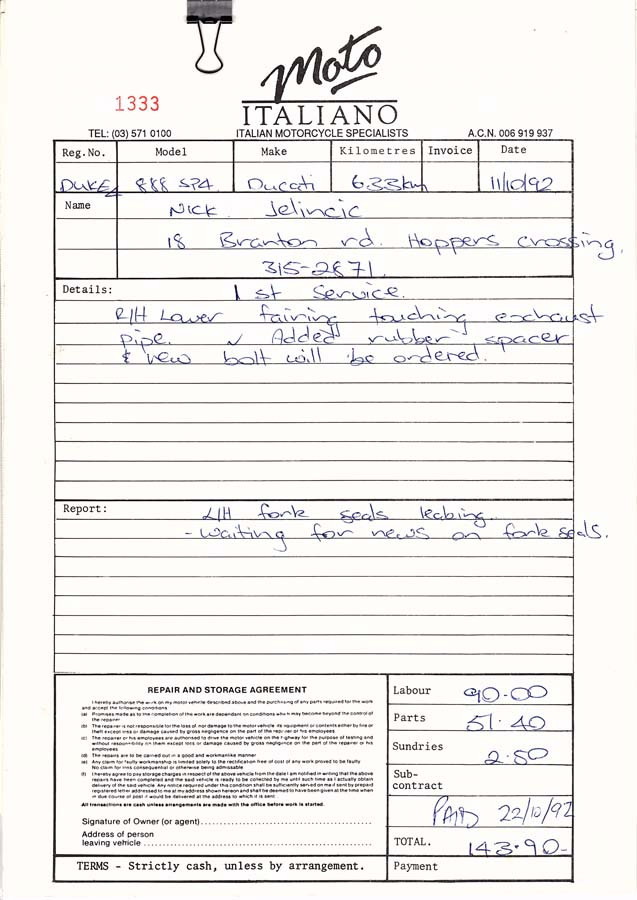 Moto
1333
ITALIANO
TEL: (03) 571 0100 ITALIAN MOTORCYCLE SPECIALISTS A.C.N. 006 919 937
Reg.No. Model Make Kilometres Invoice Date
DUKE 888 SP4 Ducati 633km 11/10/92
Name Nick Jelincic
18 Branton rd. Hoppers crossing.
315-2871
Details: 1st Service.
R/H Lower fairing touching exhaust
pipe. ✓ Added rubber spacer
& new bolt will be ordered.
Report: L/H fork seals leaking.
- waiting for news on fork seals.
REPAIR AND STORAGE AGREEMENT
I hereby authorise the work on my motor vehicle described above and the purchasing of any parts required for the work
and accept the following conditions
(a) Promises made as to the completion of the work are dependant on conditions which may become beyond the control of
the repairer
(b) The repairer is not responsible for the loss of, nor damage to the motor vehicle its equipment or contents either by fire or
theft except loss or damage caused by gross negligence on the part of the repairer or his employees.
(c) The repairer or his employees are authorised to drive the motor vehicle on the highway for the purpose of testing and
without responsibility on them except loss or damage caused by gross negligence on the part of the repairer or his
employees
(d) The repairs are to be carried out in a good and workmanlike manner
(e) Any claim for faulty workmanship is limited solely to the rectification free of cost of any work proved to be faulty
No claim for loss consequential or otherwise being admissable
(f) I hereby agree to pay storage charges in respect of the above vehicle from the date I am notified in writing that the above
repairs have been completed and the said vehicle is ready to be collected by me until such time as I actually obtain
delivery of the said vehicle. Any notice required under this condition shall be sufficiently served on me if sent by prepaid
registered letter addressed to me at my address shown hereon and shall be deemed to have been given at the time when
in due course of post it would be delivered at the address to which it is sent
All transactions are cash unless arrangements are made with the office before work is started.
Signature of Owner (or agent)
Address of person
leaving vehicle
TERMS - Strictly cash, unless by arrangement.
Labour 90.00
Parts 51.40
Sundries 2.50
Sub-
contract
PAID 22/10/92
TOTAL. 143.90-
Payment